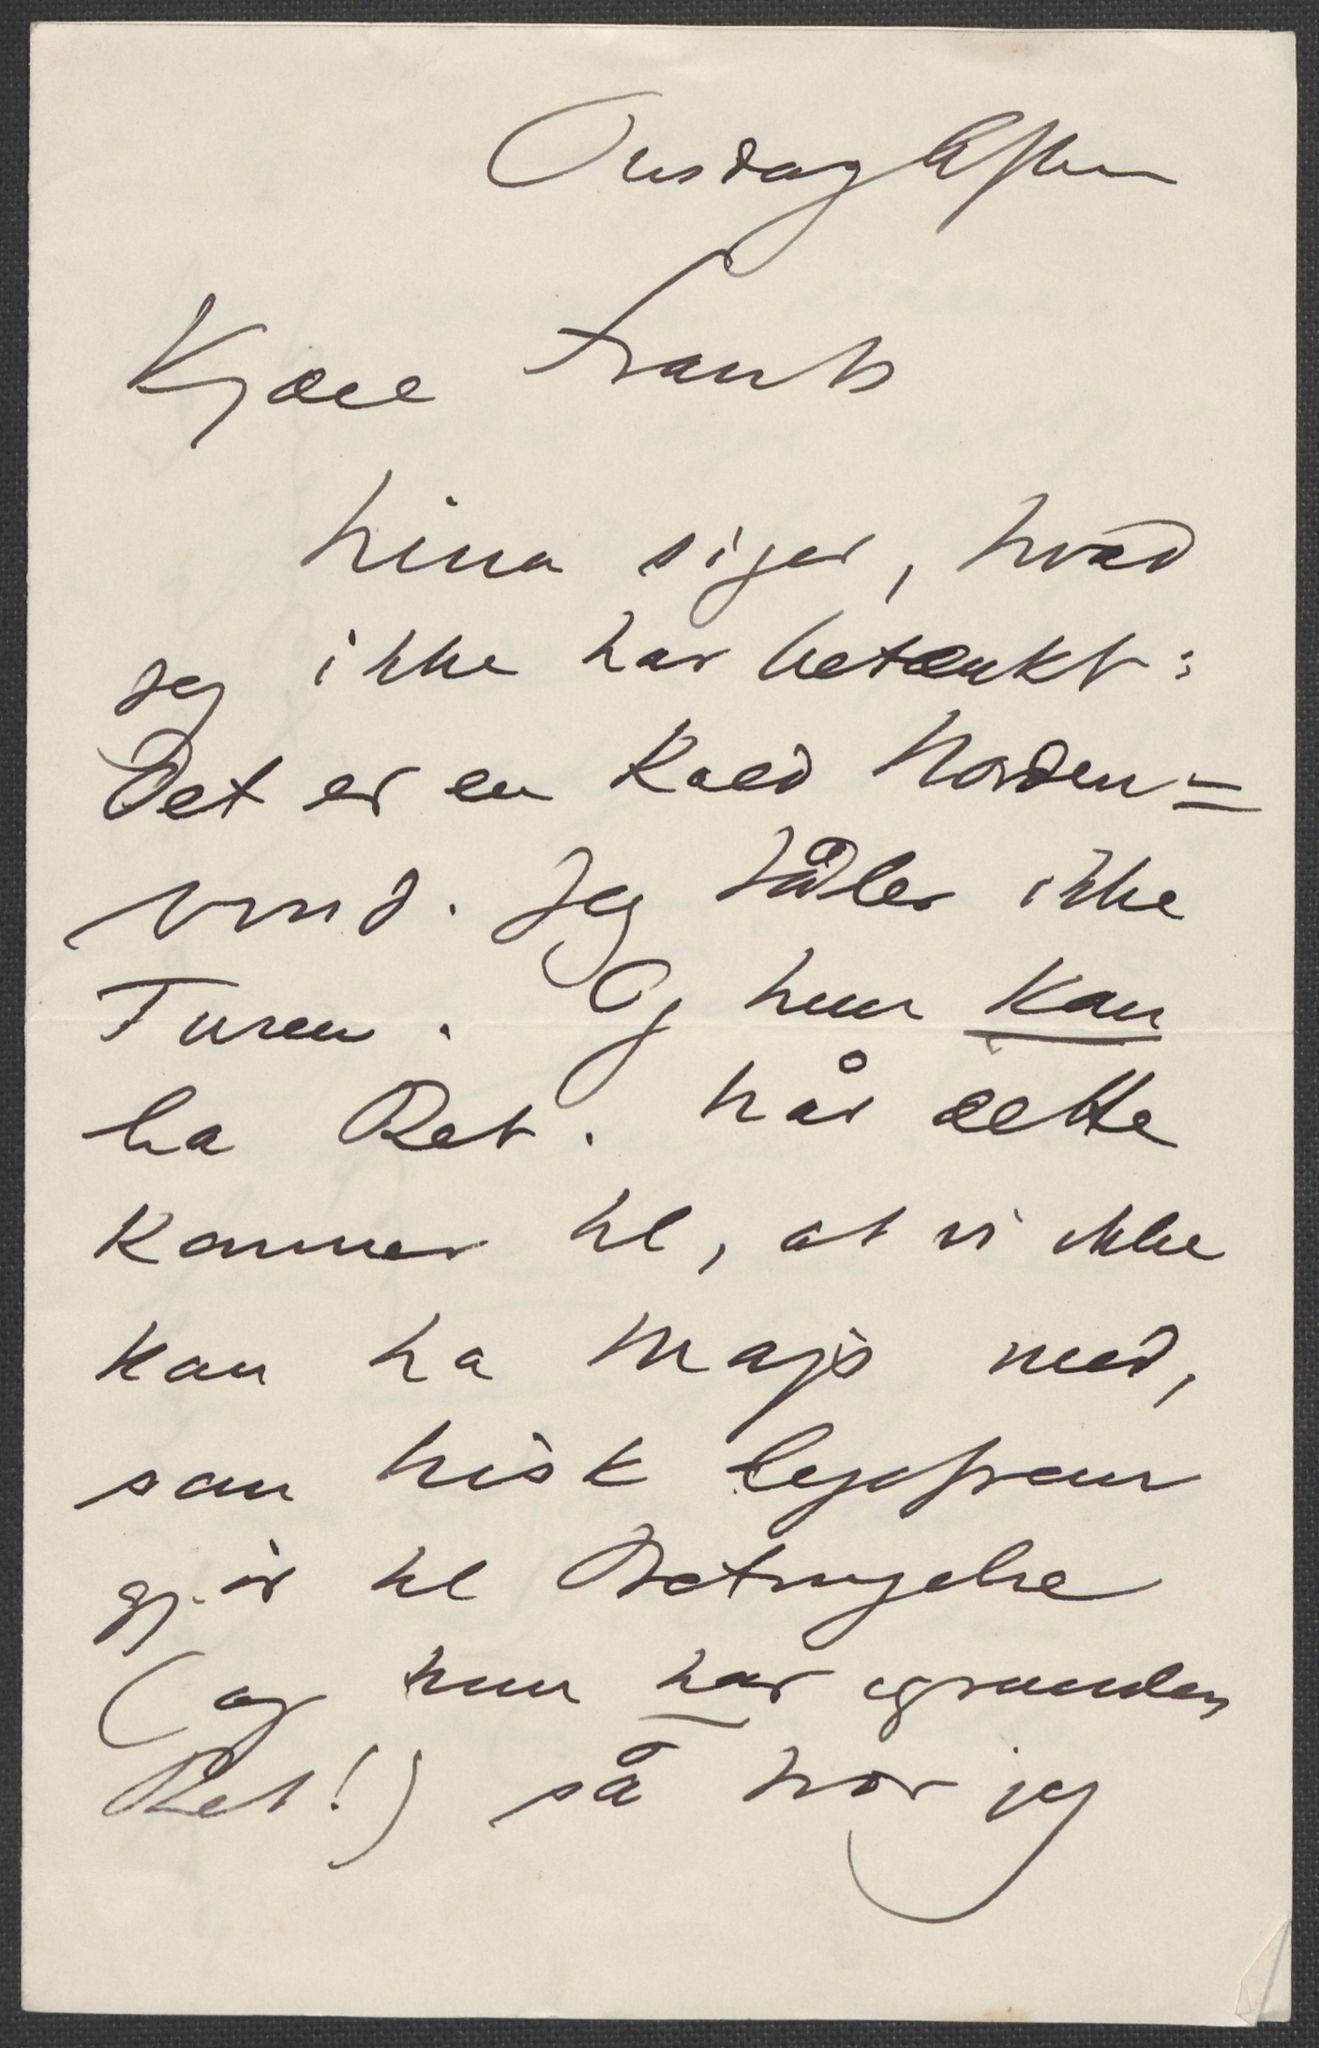 Onsdag Aften
Kjære Frants
Nina siger, hvad
jeg ikke har betænkt:
Det er en kold Norden=
vind. Jeg tåler ikke
Turen. Og hun kan
ha Ret. Når dette
kommer til, at vi ikke
kan ha Majs med,
som frisk
gjør til Betingelse
(og hun har igrunden
Ret!) så tror jeg